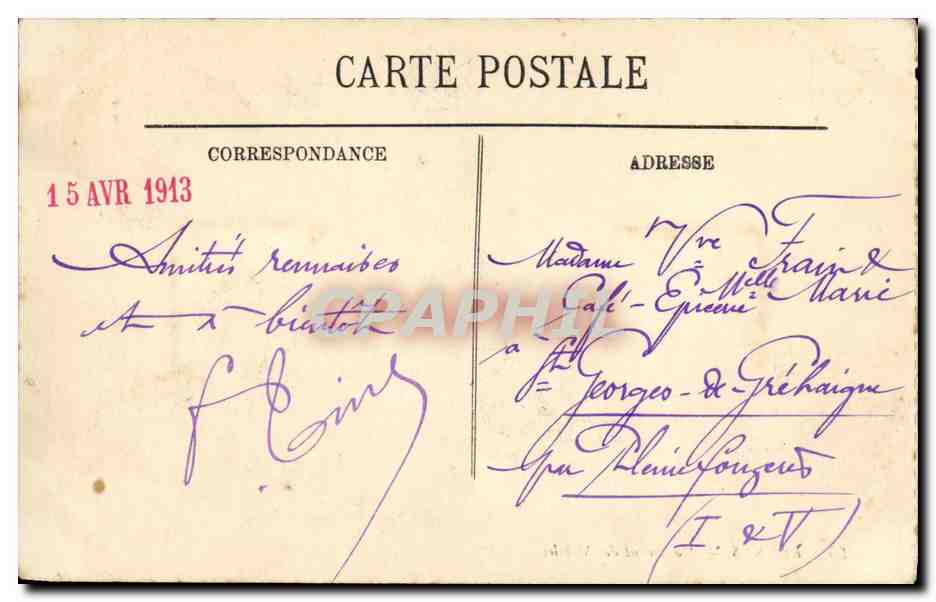 CARTE POSTALE
CORRESPONDANCE
15 AVR 1913
Amitiés rennaises
et à bientôt
ADRESSE
Madame Vve Frain &
Melle Marie
Café - Epicerie
à St Georges-de-Gréhaigne
par Pleine fougères
(I & V)
CPAPHIL